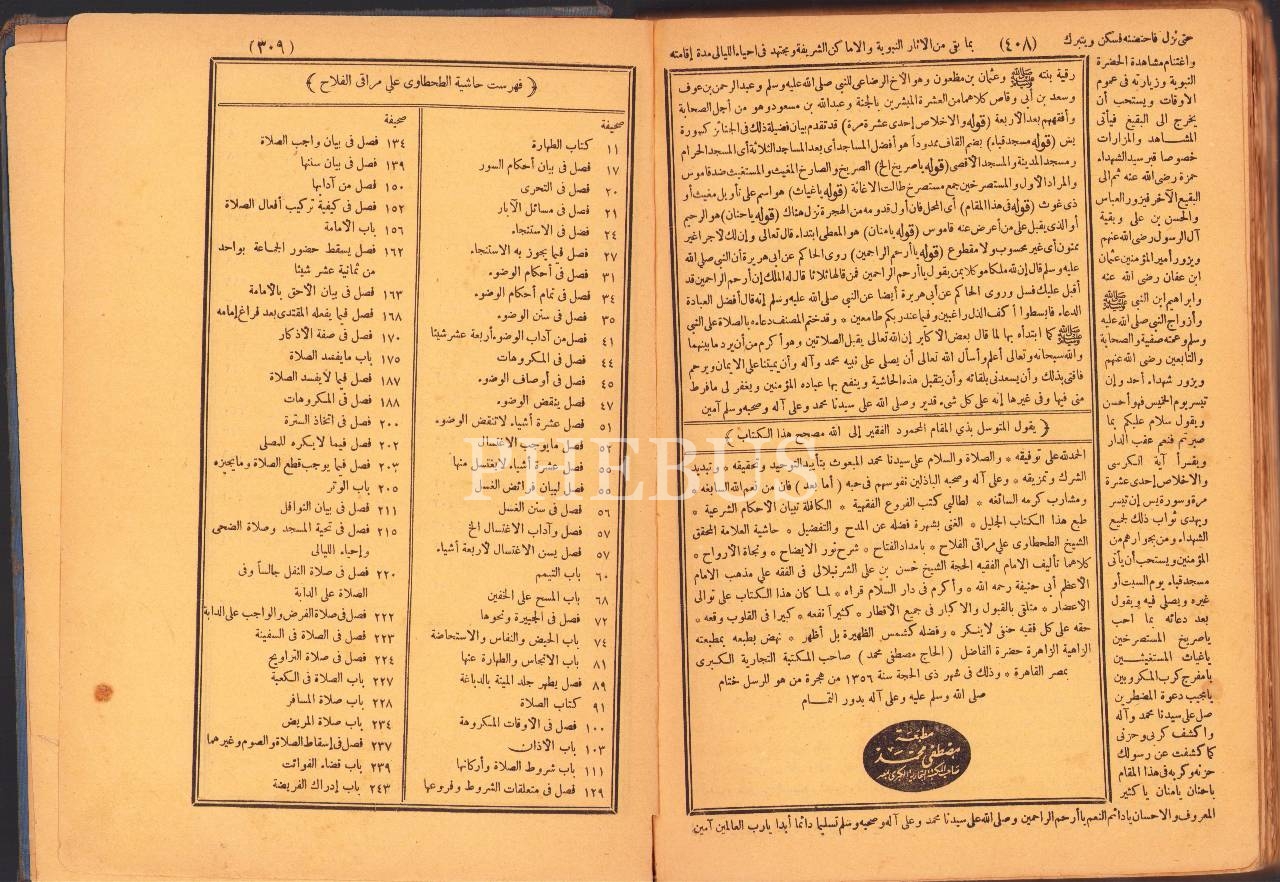 حتى نزل فاحتضنه فسكن ويتبرك (٤٠٨) بما بقى من الآثار النبوية والاماكن الشريفة ويجتهد فى احياء الليالى مدة إقامته
واغتنام مشاهدة الحضرة
النبوية وزيارته فى عموم
الأوقات ويستحب أن
يخرج الى البقيع فيأتى
المشاهد والمزارات
خصوصا قبر سيد الشهداء
حمزة رضى الله عنه ثم الى
البقيع الآخر فيزور العباس
والحسن بن على وبقية
آل الرسول رضى الله عنهم
ويزور أمير المؤمنين عثمان
ابن عفان رضى الله عنه
وابراهيم ابن النبى ﷺ
وأزواج النبى صلى الله عليه
وسلم وعمته صفية والصحابة
والتابعين رضى الله عنهم
ويزور شهداء أحد وإن
تيسر يوم الخميس فهو أحسن
ويقول سلام عليكم بما
صبرتم فنعم عقبى الدار
ويقرأ آية الكرسى
والاخلاص إحدى عشرة
مرة وسورة يس إن تيسر
ويهدى ثواب ذلك لجميع
الشهداء ومن بجوارهم من
المؤمنين ويستحب أن يأتى
مسجد قباء يوم السبت أو
غيره ويصلى فيه ويقول
بعد دعائه بما أحب
ياصريخ المستصرخين
ياغياث المستغيثين
يامفرج كرب المكروبين
يامجيب دعوة المضطرين
صل على سيدنا محمد وآله
واكشف كربى وحزنى
كما كشفت عن رسولك
حزنه وكربه فى هذا المقام
ياحنان يامنان ياكثير
المعروف والاحسان يادائم النعم ياأرحم الراحمين وصلى الله على سيدنا محمد وعلى آله وصحبه وسلم تسليما دائما أبدا يارب العالمين آمين
رقية بنته ﷺ وعثمان بن مظعون وهو الأخ الرضاعى للنبى صلى الله عليه وسلم وعبد الرحمن بن عوف
وسعد بن أبى وقاص كلاهما من العشرة المبشرين بالجنة وعبد الله بن مسعود وهو من أجل الصحابة
وأفقههم بعد الأربعة (قوله والاخلاص إحدى عشرة مرة) قد تقدم بيان فضيلة ذلك فى الجنائز كسورة
يس (قوله مسجد قباء) بضم القاف ممدوداً هو أفضل المساجد أى بعد المساجد الثلاثة أى المسجد الحرام
ومسجد المدينة والمسجد الأقصى (قوله ياصريخ الخ) الصريخ والصارخ المغيث والمستغيث ضد قاموس
والمراد الأول والمستصرخين جمع مستصرخ طالب الاغاثة (قوله ياغياث) هو اسم على تأويل مغيث أو
ذى غوث (قوله فى هذا المقام) أى المحل فان أول قدومه من الهجرة نزل هناك (قوله ياحنان) هو الرحيم
أو الذى يقبل على من أعرض عنه قاموس (قوله يامنان) هو المعطى ابتداء قال تعالى وإن لك لاجرا غير
ممنون أى غير محسوب ولا مقطوع (قوله ياأرحم الراحمين) روى الحاكم عن ابى هريرة أن النبى صلى الله
عليه وسلم قال إن لله ملكا موكلا بمن يقول ياأرحم الراحمين فمن قالها ثلاثا قال له الملك إن أرحم الراحمين قد
أقبل عليك فسل وروى الحاكم عن أبى هريرة أيضا عن النبى صلى الله عليه وسلم إنه قال أفضل العبادة
الدعاء فابسطوا أكف الذل راغبين وفيما عند ربكم طامعين * وقد ختم المصنف دعاءه بالصلاة على النبى
ﷺ كما ابتدأه بها لما قال بعض الأكابر إن الله تعالى يقبل الصلاتين وهو أكرم من أن يرد ما بينهما
والله سبحانه وتعالى أعلم وأسأل الله تعالى أن يصلى على نبيه محمد وآله وأن يميتنا على الايمان ويرحم
فاقتى بذلك وأن يسعدنى بلقائه وأن يتقبل هذه الحاشية وينفع بها عباده المؤمنين ويغفر لى مافرط
منى فيها وفى غيرها إنه على كل شىء قدير وصلى الله على سيدنا محمد وعلى آله وصحبه وسلم آمين
﴿ يقول المتوسل بذى المقام المحمود الفقير إلى الله مصحح هذا الكتاب ﴾
الحمد لله على توفيقه * والصلاة والسلام على سيدنا محمد المبعوث بتأييد التوحيد وتحقيقه * وتبديد
الشرك وتمزيقه * وعلى آله وصحبه الباذلين نفوسهم فى حبه (أما بعد) فان من نعم الله السابغه *
ومشارب كرمه السائغه * لطالبى كتب الفروع الفقهية * الكافلة ببيان الأحكام الشرعية *
طبع هذا الكتاب الجليل * الغنى بشهرة فضله عن المدح والتفضيل * حاشية العلامة المحقق
الشيخ الطحطاوى على مراقى الفلاح * بامداد الفتاح * شرح نور الايضاح * ونجاة الأرواح *
كلاهما تأليف الامام الفقيه الحجة الشيخ حسن بن على الشرنبلالى فى الفقه على مذهب الامام
الأعظم أبى حنيفة رحمه الله * وأكرم فى دار السلام قراه * لما كان هذا الكتاب على توالى
الأعصار * متلقى بالقبول والاكبار فى جميع الأقطار * كثيراً نفعه * كبيرا فى القلوب وقعه *
حقه على كل فقيه حنفى لاينكر * وفضله كشمس الظهيرة بل أظهر * نهض بطبعه بمطبعته
الزاهية الزاهرة حضرة الفاضل (الحاج مصطفى محمد) صاحب المكتبة التجارية الكبرى
بمصر القاهرة * وذلك فى شهر ذى الحجة سنة ١٣٥٦ من هجرة من هو للرسل ختام
صلى الله وسلم عليه وعلى آله بدور التمام
مطبعة
مصطفى محمد
صاحب المكتبة التجارية الكبرى بمصر
(٣٠٩)
﴿ فهرست حاشية الطحطاوى على مراقى الفلاح ﴾
صحيفة
١١ كتاب الطهارة
١٧ فصل فى بيان أحكام السور
٢٠ فصل فى التحرى
٢١ فصل فى مسائل الآبار
٢٤ فصل فى الاستنجاء
٢٧ فصل فيما يجوز به الاستنجاء
٣١ فصل فى أحكام الوضوء
٣٤ فصل فى تمام أحكام الوضوء
٣٥ فصل فى سنن الوضوء
٤١ فصل من آداب الوضوء أربعة عشر شيئا
٤٤ فصل فى المكروهات
٤٥ فصل فى أوصاف الوضوء
٤٧ فصل ينقض الوضوء
٥١ فصل عشرة أشياء لاتنقض الوضوء
٥٢ فصل مايوجب الاغتسال
٥٥ فصل عشرة أشياء لايغتسل منها
٥٥ فصل لبيان فرائض الغسل
٥٦ فصل فى سنن الغسل
٥٧ فصل وآداب الاغتسال الخ
٥٧ فصل يسن الاغتسال لأربعة أشياء
٦٠ باب التيمم
٦٨ باب المسح على الخفين
٧٢ فصل فى الجبيرة ونحوها
٧٤ باب الحيض والنفاس والاستحاضة
٨١ باب الانجاس والطهارة عنها
٨٩ فصل يطهر جلد الميتة بالدباغة
٩١ كتاب الصلاة
١٠٠ فصل فى الأوقات المكروهة
١٠٣ باب الأذان
١١١ باب شروط الصلاة وأركانها
١٢٩ فصل فى متعلقات الشروط وفروعها
صحيفة
١٣٤ فصل فى بيان واجب الصلاة
١٣٩ فصل فى بيان سننها
١٥٠ فصل من آدابها
١٥٢ فصل فى كيفية تركيب أفعال الصلاة
١٥٦ باب الامامة
١٦٢ فصل يسقط حضور الجماعة بواحد
من ثمانية عشر شيئا
١٦٣ فصل فى بيان الأحق بالامامة
١٦٨ فصل فيما يفعله المقتدى بعد فراغ إمامه
١٧٠ فصل فى صفة الأذكار
١٧٥ باب مايفسد الصلاة
١٨٧ فصل فيما لايفسد الصلاة
١٨٨ فصل فى المكروهات
٢٠٠ فصل فى اتخاذ السترة
٢٠٢ فصل فيما لايكره للمصلى
٢٠٣ فصل فيما يوجب قطع الصلاة ومايجيزه
٢٠٥ باب الوتر
٢١١ فصل فى بيان النوافل
٢١٥ فصل فى تحية المسجد وصلاة الضحى
وإحياء الليالى
٢٢٠ فصل فى صلاة النفل جالساً وفى
الصلاة على الدابة
٢٢٢ فصل فى صلاة الفرض والواجب على الدابة
٢٢٣ فصل فى الصلاة فى السفينة
٢٢٤ فصل فى صلاة التراويح
٢٢٧ باب الصلاة فى الكعبة
٢٢٨ باب صلاة المسافر
٢٣٤ باب صلاة المريض
٢٣٧ فصل فى إسقاط الصلاة والصوم وغيرهما
٢٣٩ باب قضاء الفوائت
٢٤٣ باب إدراك الفريضة
PHEBUS